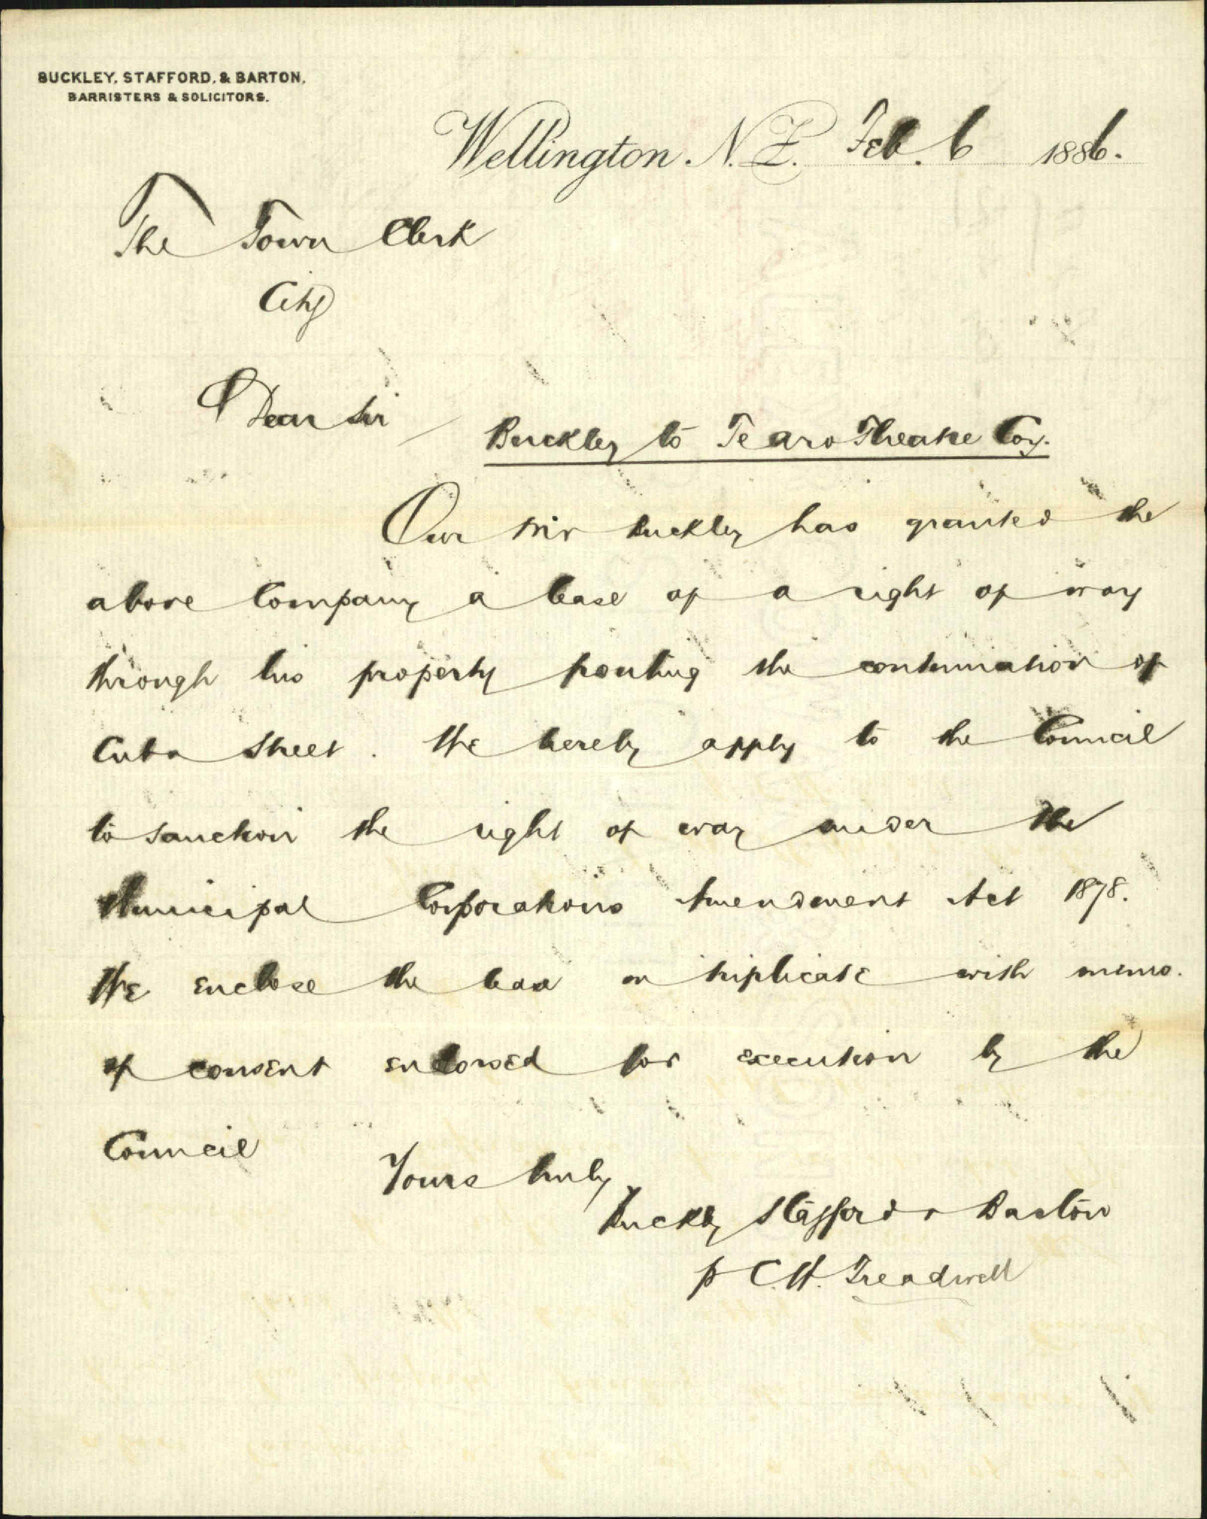 BUCKLEY, STAFFORD, & BARTON,
BARRISTERS & SOLICITORS.
Wellington. N.Z. Feb. 6 1886.
The Town Clerk
City
Dear Sir
Buckley to Te Aro Theatre Coy.
Our Mr Buckley has granted the
above Company a lease of a right of way
through his property fronting the continuation of
Cuba Street. We hereby apply to the Council
to sanction the right of way under the
Municipal Corporations Amendment Act 1878.
We enclose the lease in triplicate with memo.
of consent endorsed for execution by the
Council
Yours truly
Buckley Stafford & Barton
p C.H. Treadwell